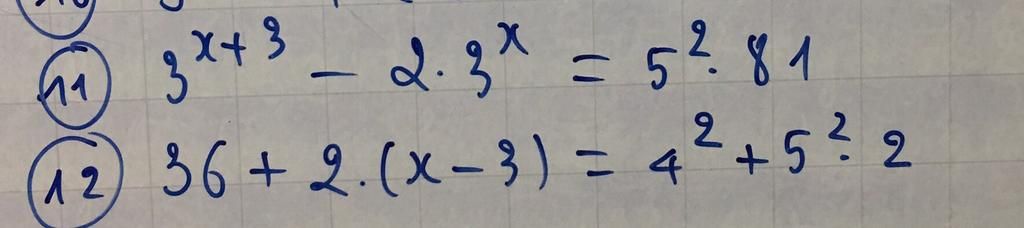 11 3^{x+3} - 2 · 3^x = 5^2 · 81
12 36 + 2 · (x - 3) = 4^2 + 5^2 · 2